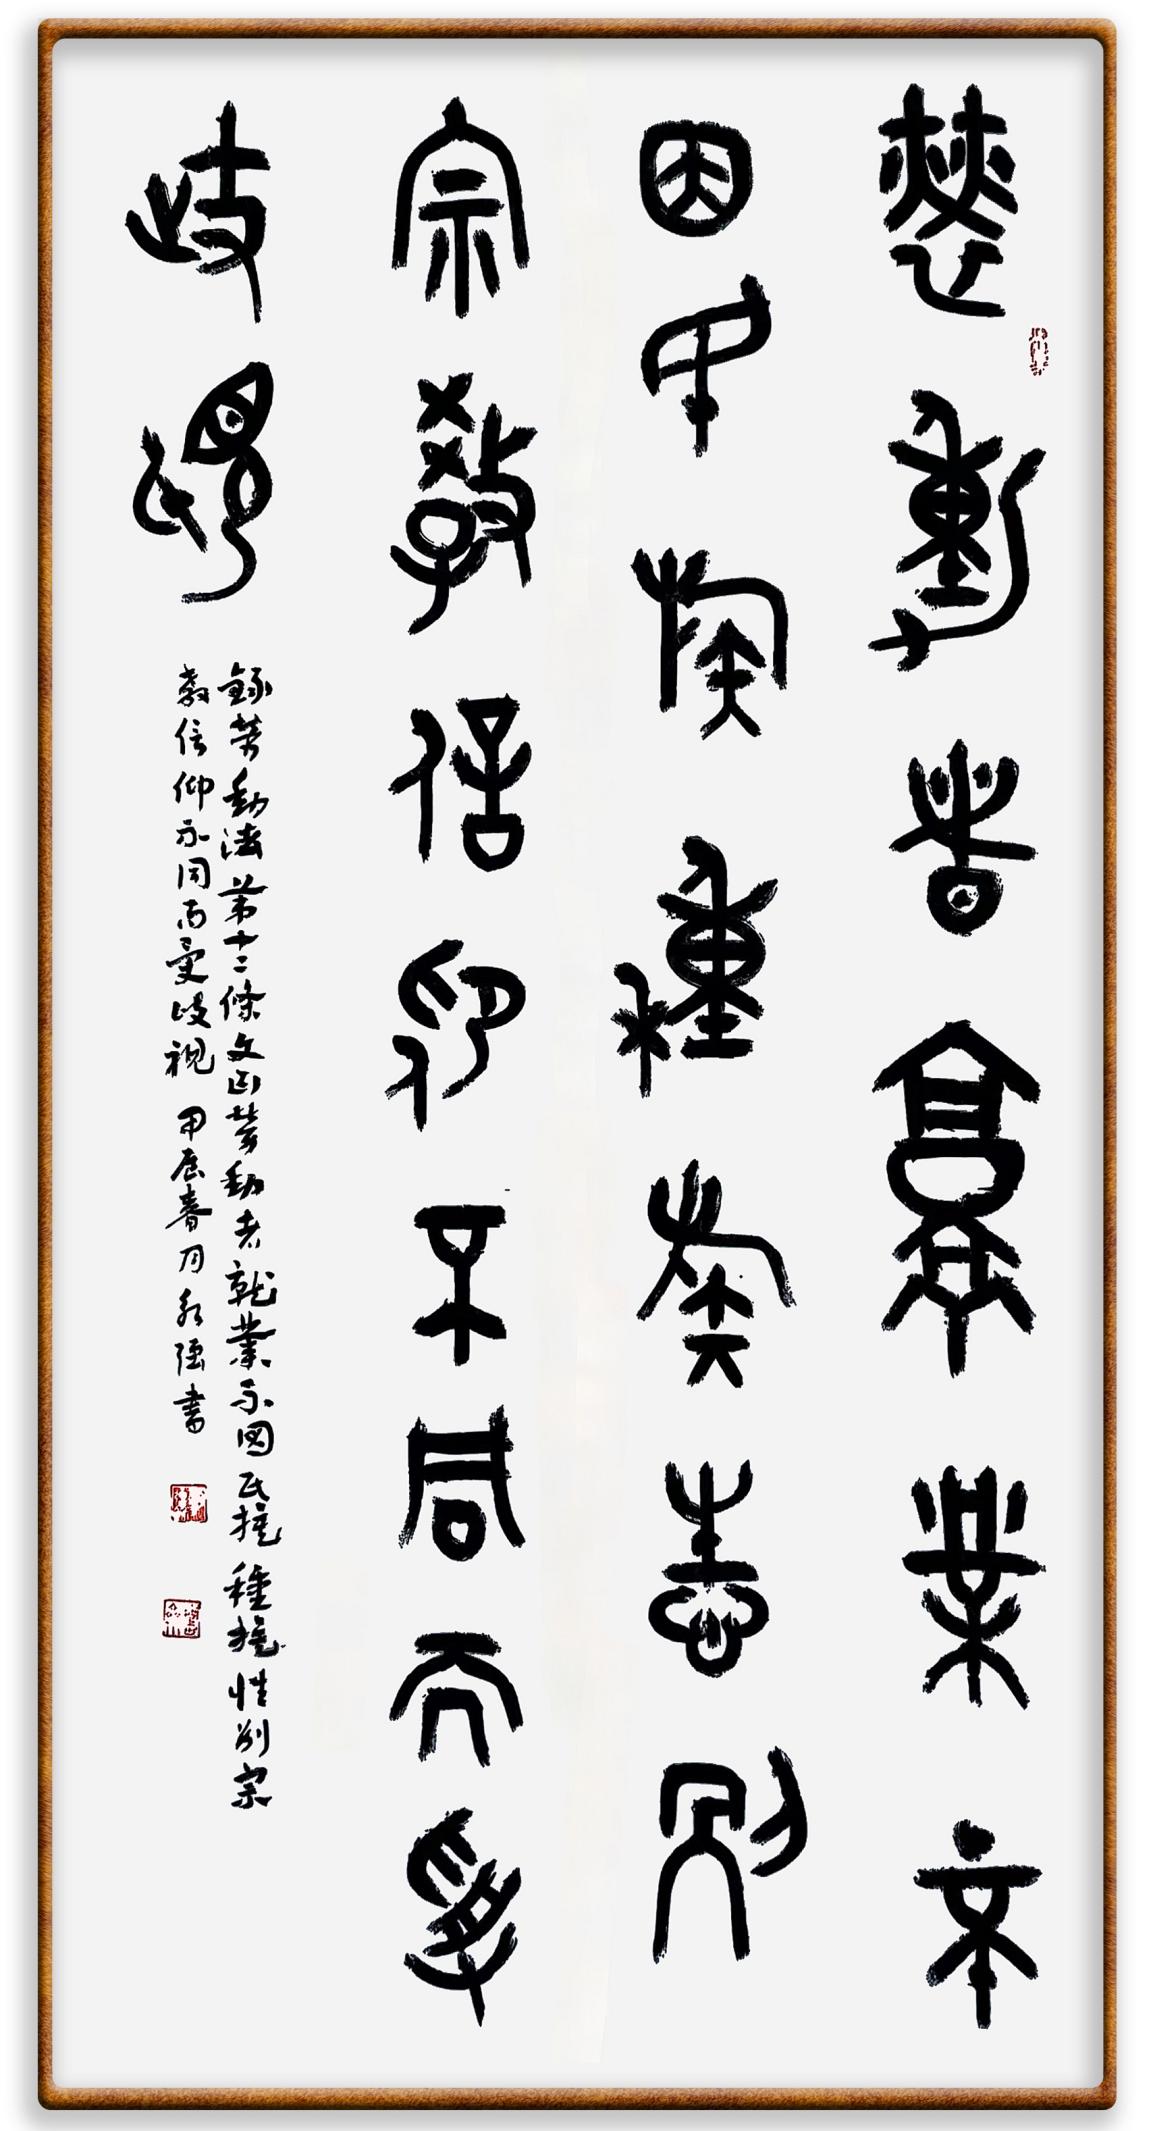 勞動者就業不
因民族種族性別
宗教信仰不同而受
歧視
錄勞動法第十二條文曰勞動者就業不因民族種族性別宗
教信仰不同而受歧視 甲辰春月永强書